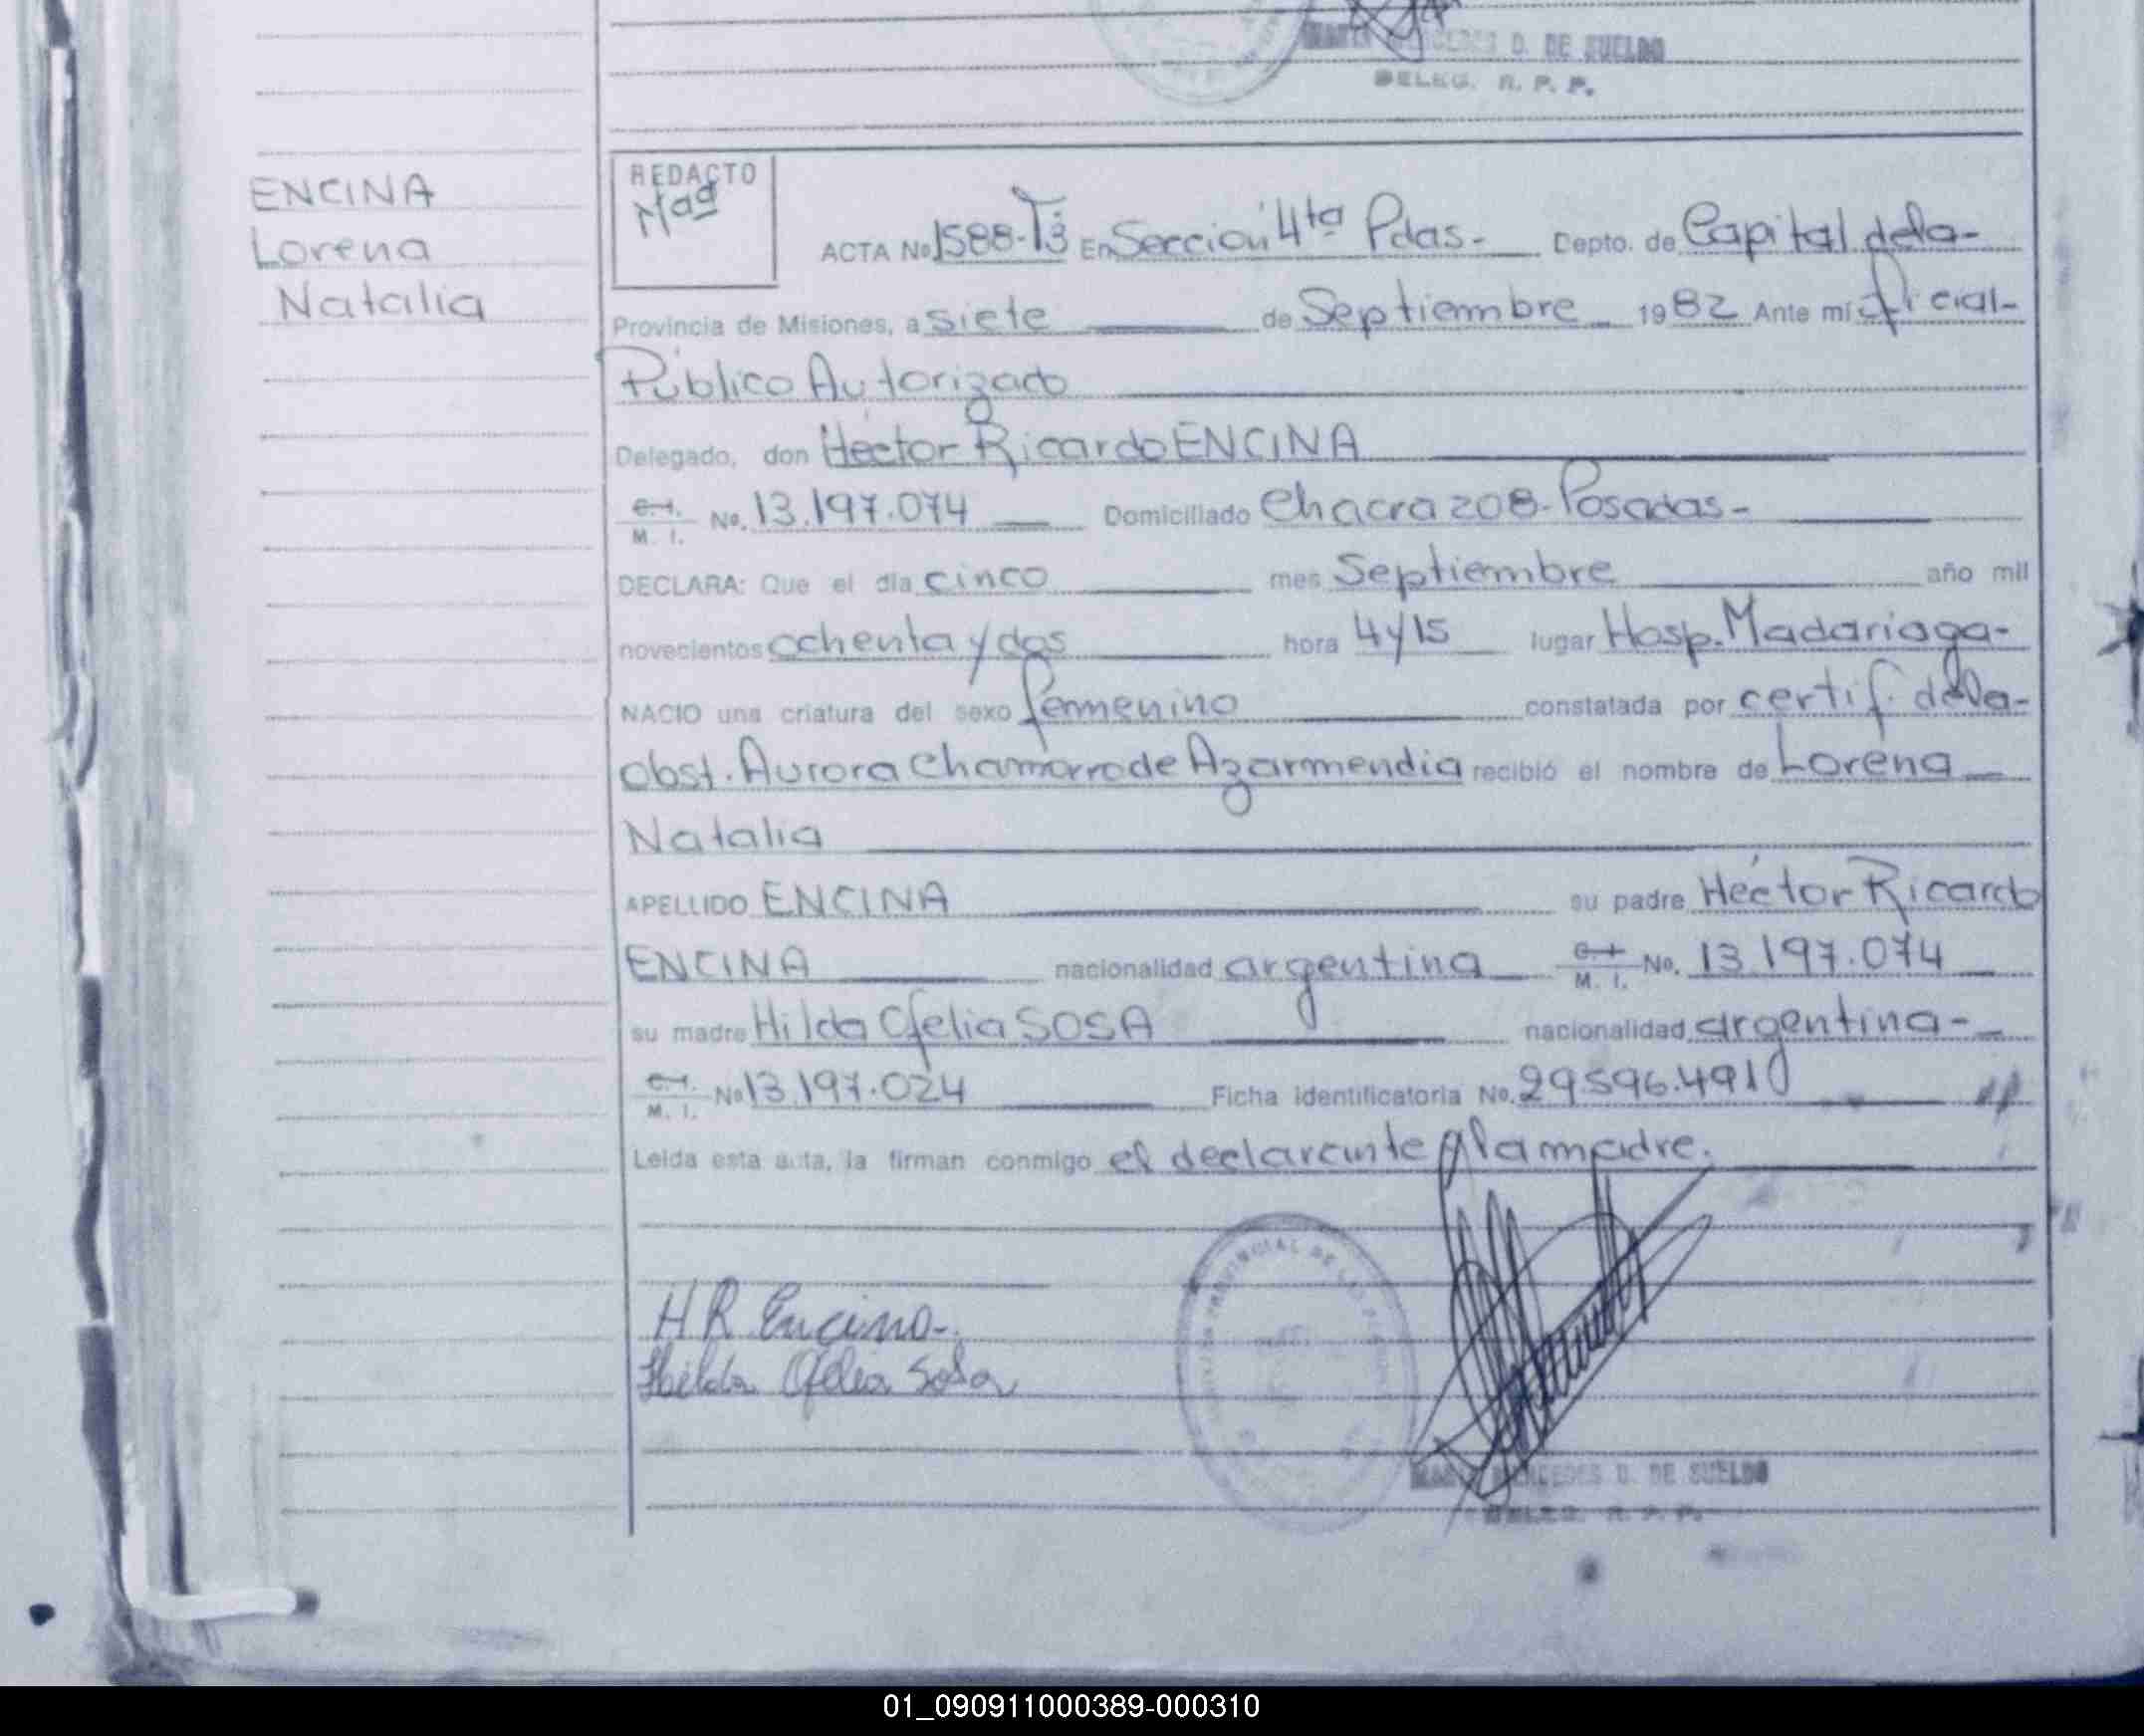 D. DE SUELDO
DELEG. R. P. P.
ENCINA
Lorena
Natalia
REDACTO
ACTA No 1588-T3 En Sección 4ta Pdas.- Depto. de Capital de la-
Provincia de Misiones, a siete de Septiembre 1982 Ante mí Oficial-
Público Autorizado
Delegado, don Héctor Ricardo ENCINA
C.I. M. I. No. 13.197.074 Domiciliado Chacra 208-Posadas-
DECLARA: Que el día cinco mes Septiembre año mil
novecientos ochenta y dos hora 4y15 lugar Hosp. Madariaga-
NACIO una criatura del sexo femenino constatada por certif. de la-
obst. Aurora Chamorro de Azarmendia recibió el nombre de Lorena
Natalia
APELLIDO ENCINA su padre Héctor Ricardo
ENCINA nacionalidad argentina C.I. M. I. No. 13.197.074
su madre Hilda Ofelia SOSA nacionalidad argentina-
C.I. M. I. No 13.197.024 Ficha identificatoria No. 29.596.491
Leída esta acta, la firman conmigo el declarante y la madre.
H R Encina-
Hilda Ofelia Sosa
MERCEDES D. DE SUELDO
DELEG. R. P. P.
01_090911000389-000310